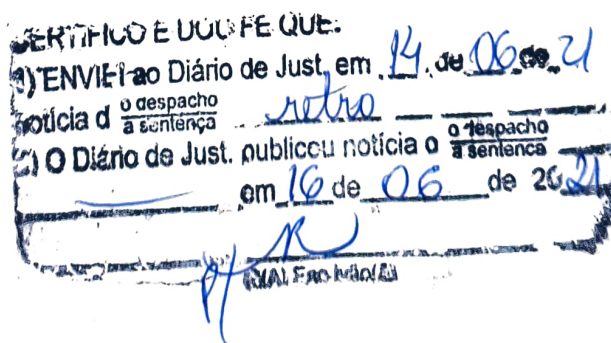 CERTIFICO E DOU FE QUE:
1) ENVIEI ao Diário de Just. em 14 de 06 de 21
notícia d o despacho
a sentença retro
2) O Diário de Just. publicou notícia o o despacho
a sentença
em 16 de 06 de 2021